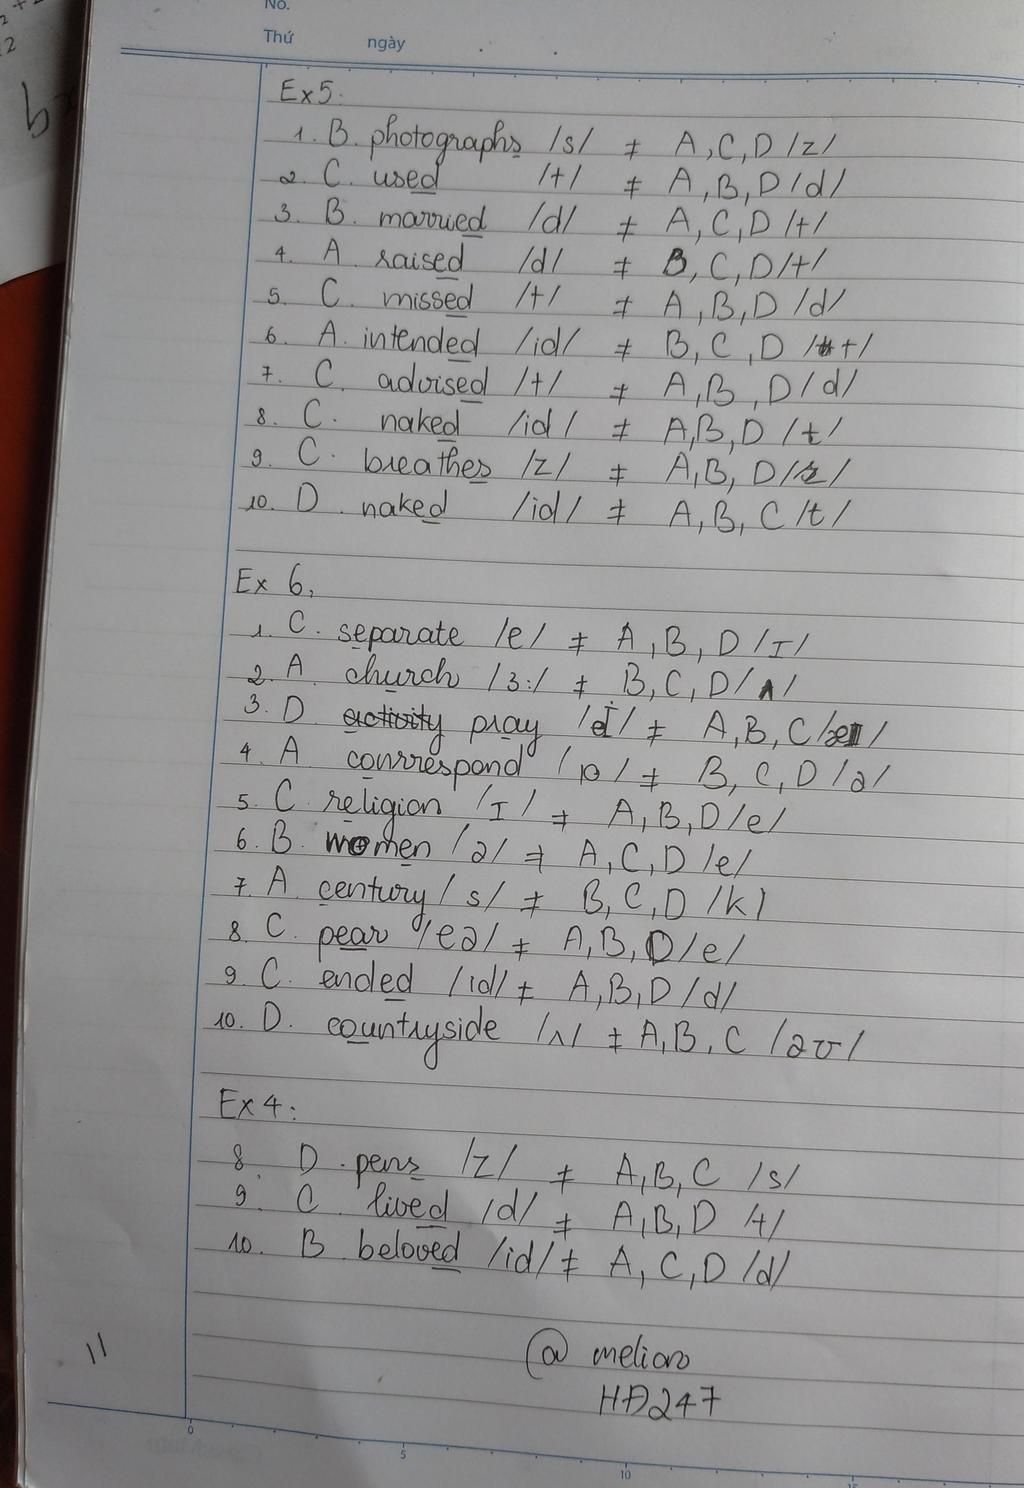 No.
Thứ ngày
Ex5:
1. B. photographs /s/ ≠ A, C, D /z/
2. C. used /t/ ≠ A, B, D /d/
3. B. married /d/ ≠ A, C, D /t/
4. A raised /d/ ≠ B, C, D /t/
5. C. missed /t/ ≠ A, B, D /d/
6. A. intended /id/ ≠ B, C, D /t/
7. C. advised /t/ ≠ A, B, D /d/
8. C. naked /id/ ≠ A, B, D /t/
9. C. breathes /z/ ≠ A, B, D /s/
10. D naked /id/ ≠ A, B, C /t/
Ex 6,
1. C. separate /e/ ≠ A, B, D /I/
2. A church /3:/ ≠ B, C, D /ʌ/
3. D activity pray /eI/ ≠ A, B, C /æ/
4. A courrespond /ɒ/ ≠ B, C, D /ə/
5. C religion /I/ ≠ A, B, D /e/
6. B. women /ə/ ≠ A, C, D /e/
7. A century /s/ ≠ B, C, D /k/
8. C. pear /eə/ ≠ A, B, D /e/
9. C. ended /id/ ≠ A, B, D /d/
10. D. countryside /ʌ/ ≠ A, B, C /aʊ/
Ex 4:
8. D. pens /z/ ≠ A, B, C /s/
9. C lived /d/ ≠ A, B, D /t/
10. B beloved /id/ ≠ A, C, D /d/
11
HĐ247
0 5 10 15